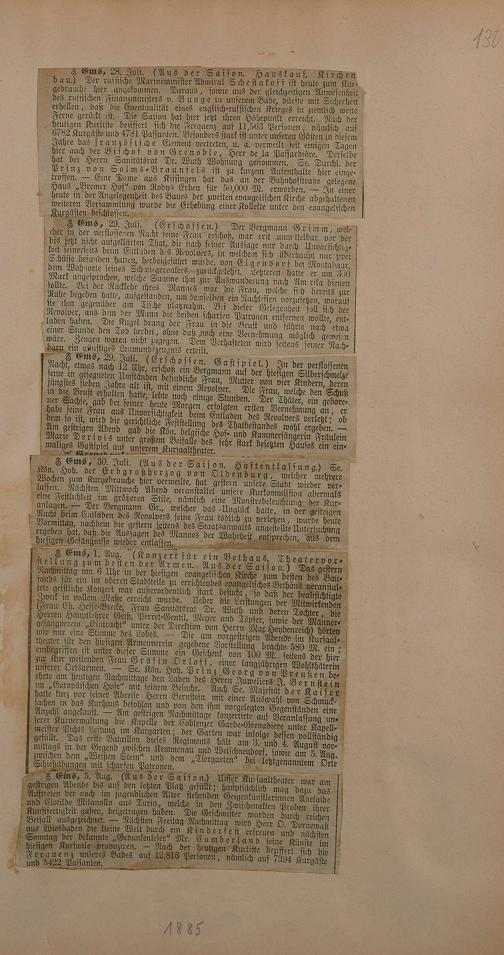 130
Ems, 28. Juli. (Aus der Saison. Hauskauf. Kirchen
bau.) Der russische Marineminister Admiral Schestakoff ist heute zum Kur-
gebrauche hier angekommen. Daraus, sowie aus der gleichzeitigen Anwesenheit
des russischen Finanzministers v. Bunge in unserem Bade, dürfte mit Sicherheit
erhellen, daß die Eventualität eines englisch-russischen Krieges in ziemlich weite
Ferne gerückt ist. Die Saison hat hier jetzt ihren Höhepunkt erreicht. Nach der
heutigen Kurliste beziffert sich die Frequenz auf 11,563 Personen, nämlich auf
6782 Kurgäste und 4781 Passanten. Besonders stark ist unter unseren Gästen in diesem
Jahre das französische Element vertreten, u. a. verweilt seit einigen Tagen
hier auch der Bischof von Grenoble, Herr de la Passardière. Derselbe
hat bei Herrn Sanitätsrat Dr. Wuth Wohnung genommen. Se. Durchl. der
Prinz von Solms-Braunfels ist zu kurzem Aufenthalte hier einge-
troffen. — Eine Dame aus Kissingen hat das an der Bahnhofstraße gelegene
Haus „Bremer Hof" von Robys Erben für 50,000 M. erworben. — In einer
heute in der Angelegenheit des Baues der zweiten evangelischen Kirche abgehaltenen
weiteren Versammlung wurde die Erhebung einer Kollekte unter den evangelischen
Kurgästen beschlossen.
Ems, 29. Juli. (Erschossen.) Der Bergmann Grimm, wel-
cher in der verflossenen Nacht seine Frau erschoß, war erst unmittelbar vor der
bis jetzt nicht aufgeklärten That, die nach seiner Aussage nur durch Unvorsichtig-
keit seinerseits beim Entladen des Revolvers, in welchem sich überhaupt nur zwei
Schüsse befunden hatten, herbeigeführt wurde, von Elgendorf bei Montabaur,
dem Wohnorte seines Schwiegervaters, zurückgekehrt. Letzteren hatte er um 350
Mark angesprochen, welche Summe ihm zur Auswanderung nach Amerika dienen
sollte. Bei der Rückkehr ihres Mannes war die Frau, welche sich bereits zur
Ruhe begeben hatte, aufgestanden, um demselben ein Nachtessen vorzusetzen, worauf
sie ihm gegenüber am Tische platznahm. Bei dieser Gelegenheit soll sich der
Revolver, aus dem der Mann die beiden scharfen Patronen entfernen wollte, ent-
laden haben. Die Kugel drang der Frau in die Brust und führte nach etwa
einer Stunde den Tod herbei, ohne daß noch eine Vernehmung möglich gewesen
wäre. Zeugen waren nicht zugegen. Dem Verhafteten wird seitens seiner Nach-
barn ein günstiges Leumundszeugnis erteilt.
Ems, 29. Juli. (Erschossen. Gastspiel.) In der verflossenen
Nacht, etwas nach 12 Uhr, erschoß ein Bergmann auf der hiesigen Silberschmelze
seine in gesegneten Umständen befindliche Frau, Mutter von vier Kindern, deren
jüngstes sieben Jahre alt ist, mit einem Revolver. Die Frau, welche den Schuß
in die Brust erhalten hatte, lebte noch einige Stunden. Der Thäter, ein gebore-
ner Sachse, gab bei seiner heute Morgen erfolgten ersten Vernehmung an, er
habe seine Frau aus Unvorsichtigkeit beim Entladen des Revolvers verletzt; ob
dem so ist, wird die gerichtliche Feststellung des Thatbestandes wohl ergeben. —
Am gestrigen Abend gab die Kön. belgische Hof- und Kammersängerin Fräulein
Marie Derivis unter großem Beifalle des sehr stark besetzten Hauses ein ein-
maliges Gastspiel auf unserem Kursaaltheater.
Ems, 30. Juli. (Aus der Saison. Haftentlassung.) Se.
Kön. Hoh. der Erbgroßherzog von Oldenburg, welcher mehrere
Wochen zum Kurgebrauche hier verweilte, hat gestern unsere Stadt wieder ver-
lassen. Nächsten Mittwoch Abend veranstaltet unsere Kurkommission abermals
eine Festlichkeit im größeren Stile, nämlich eine Monstrebeleuchtung der Kur-
anlagen. — Der Bergmann Gr., welcher das Unglück hatte, in der gestrigen
Nacht beim Entladen des Revolvers seine Frau tödtlich zu verletzen, wurde heute
Vormittag, nachdem die gestern seitens des Staatsanwalts angestellte Untersuchung
ergeben hat, daß die Aussagen des Mannes der Wahrheit entsprechen, aus dem
hiesigen Gefängnisse wieder entlassen.
Ems, 1. Aug. (Konzert für ein Bethaus. Theatervor-
stellung zum besten der Armen. Aus der Saison.) Das gestern
Nachmittag um 6 Uhr in der hiesigen evangelischen Kirche zum besten des Bau-
fonds für ein im oberen Stadtteile zu errichtendes evangelisches Bethaus veranstal-
tete geistliche Konzert war außerordentlich stark besucht, so daß der beabsichtigte
Zweck in vollem Maße erreicht wurde. Ueber die Leistungen der Mitwirkenden
(Frau Ch. Hesse-Brecke, Frau Sanitätsrat Dr. Wuth und deren Tochter, die
Herren Hauptlehrer Geiß, Berret-Gentil, Meyer und Täpfer, sowie der Männer-
gesangverein „Eintracht" unter der Direktion von Herrn May-Heydenreich) hörten
wir nur eine Stimme des Lobes. — Die am vorgestrigen Abende im Kursaal-
theater für den hiesigen Armenverein gegebene Vorstellung brachte 580 M. ein;
einbegriffen ist unter dieser Summe ein Geschenk von 100 M. seitens der hier
zur Kur weilenden Frau Gräfin Orloff, einer langjährigen Wohlthäterin
unserer Ortsarmen. — Se. Kön. Hoh. Prinz Georg von Preußen be-
ehrte am heutigen Nachmittage den Laden des Herrn Juweliers J. Bernstein
im „Europäischen Hofe" mit seinem Besuche. Auch Se. Majestät der Kaiser
hatte kurz vor seiner Abreise Herrn Bernstein mit einer Auswahl von Schmuck-
sachen in das Kurhaus befohlen und von den ihm vorgelegten Gegenständen eine
Anzahl angekauft. — Am gestrigen Nachmittage konzertierte auf Veranlassung un-
serer Kurverwaltung die Kapelle der Coblenzer Garde-Grenadiere unter Kapell-
meister Pichts Leitung im Kurgarten; der Garten war infolge dessen vollständig
gefüllt. Das erste Bataillon dieses Regiments hält am 3. und 4. August vor-
mittags in der Gegend zwischen Kemmenau und Welschneudorf, sowie am 5. Aug.
zwischen dem „Weißen Stein" und dem „Tiergarten" bei letztgenanntem Orte
Schießübungen mit scharfen Patronen ab.
Ems, 5. Aug. (Aus der Saison.) Unser Kursaaltheater war am
gestrigen Abende bis auf den letzten Platz gefüllt; hauptsächlich mag dazu das
Auftreten der noch im jugendlichen Alter stehenden Geigenkünstlerinnen Adelaide
und Clotilde Milanollo aus Turin, welche in den Zwischenakten Proben ihrer
Kunstfertigkeit gaben, beigetragen haben. Die Geschwister wurden durch reichen
Beifall ausgezeichnet. — Nächsten Freitag Nachmittag wird Herr O. Dornewaß
aus Wiesbaden die kleine Welt durch ein Kinderfest erfreuen und nächsten
Sonntag der bekannte „Gedankenleser" Mr. Cumberland seine Künste im
hiesigen Kursaale produzieren. — Nach der heutigen Kurliste beziffert sich die
Frequenz unseres Bades auf 12,816 Personen, nämlich auf 7394 Kurgäste
und 5422 Passanten.
1885